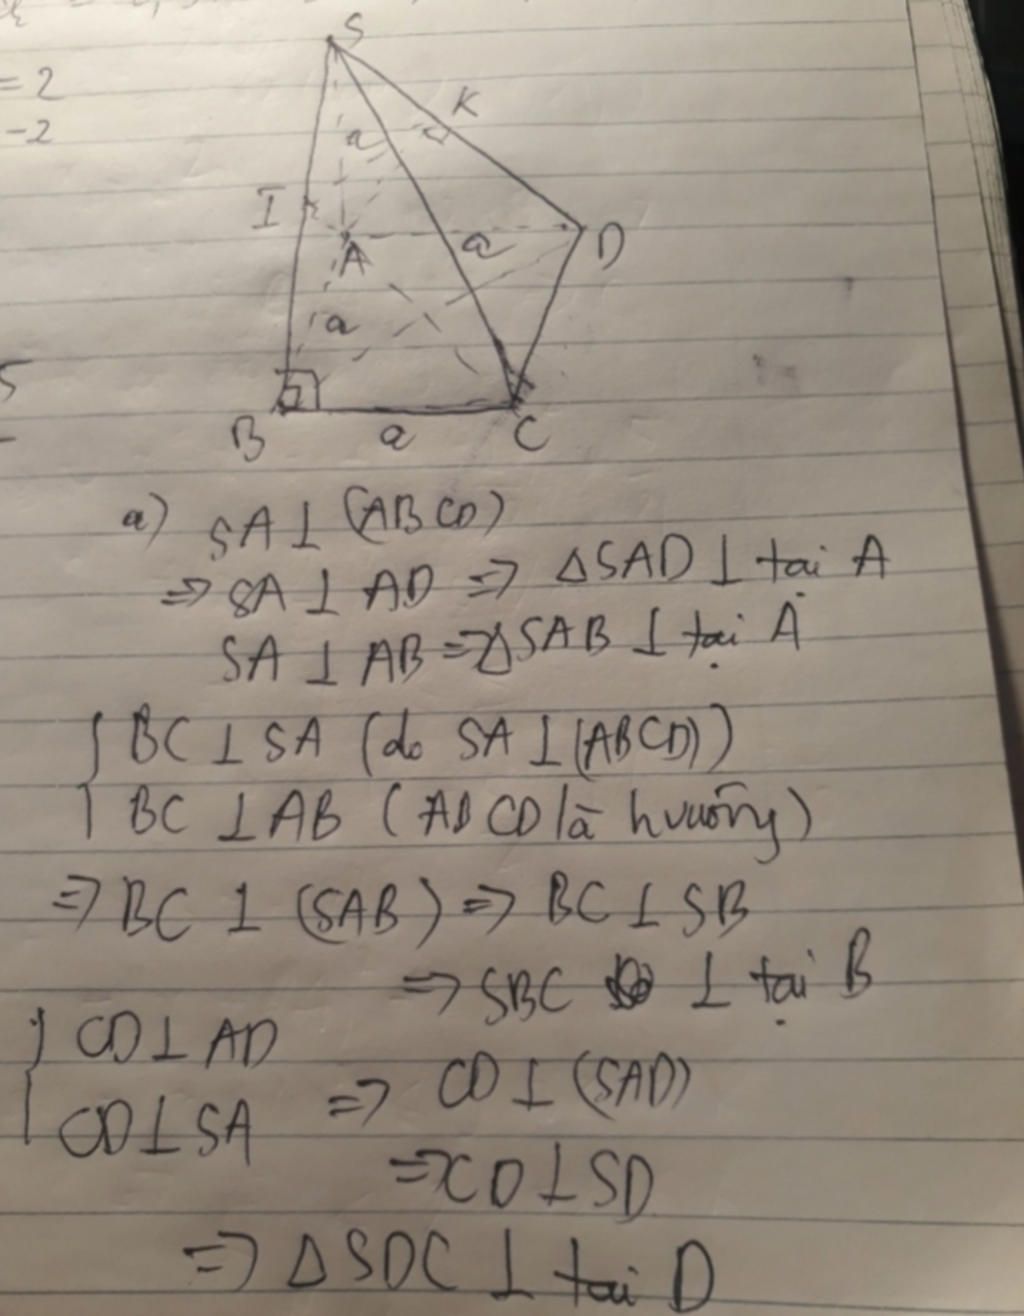 = 2
-2
S
K
a
I
A
a
D
a
B
a
C
a) SA ⊥ (ABCD)
=> SA ⊥ AD => ΔSAD ⊥ tại A
SA ⊥ AB => ΔSAB ⊥ tại A
{ BC ⊥ SA (do SA ⊥ (ABCD))
BC ⊥ AB (ABCD là hvuông)
=> BC ⊥ (SAB) => BC ⊥ SB
=> SBC ⊥ tại B
{ CD ⊥ AD
CD ⊥ SA => CD ⊥ (SAD)
=> CD ⊥ SD
=> ΔSDC ⊥ tại D